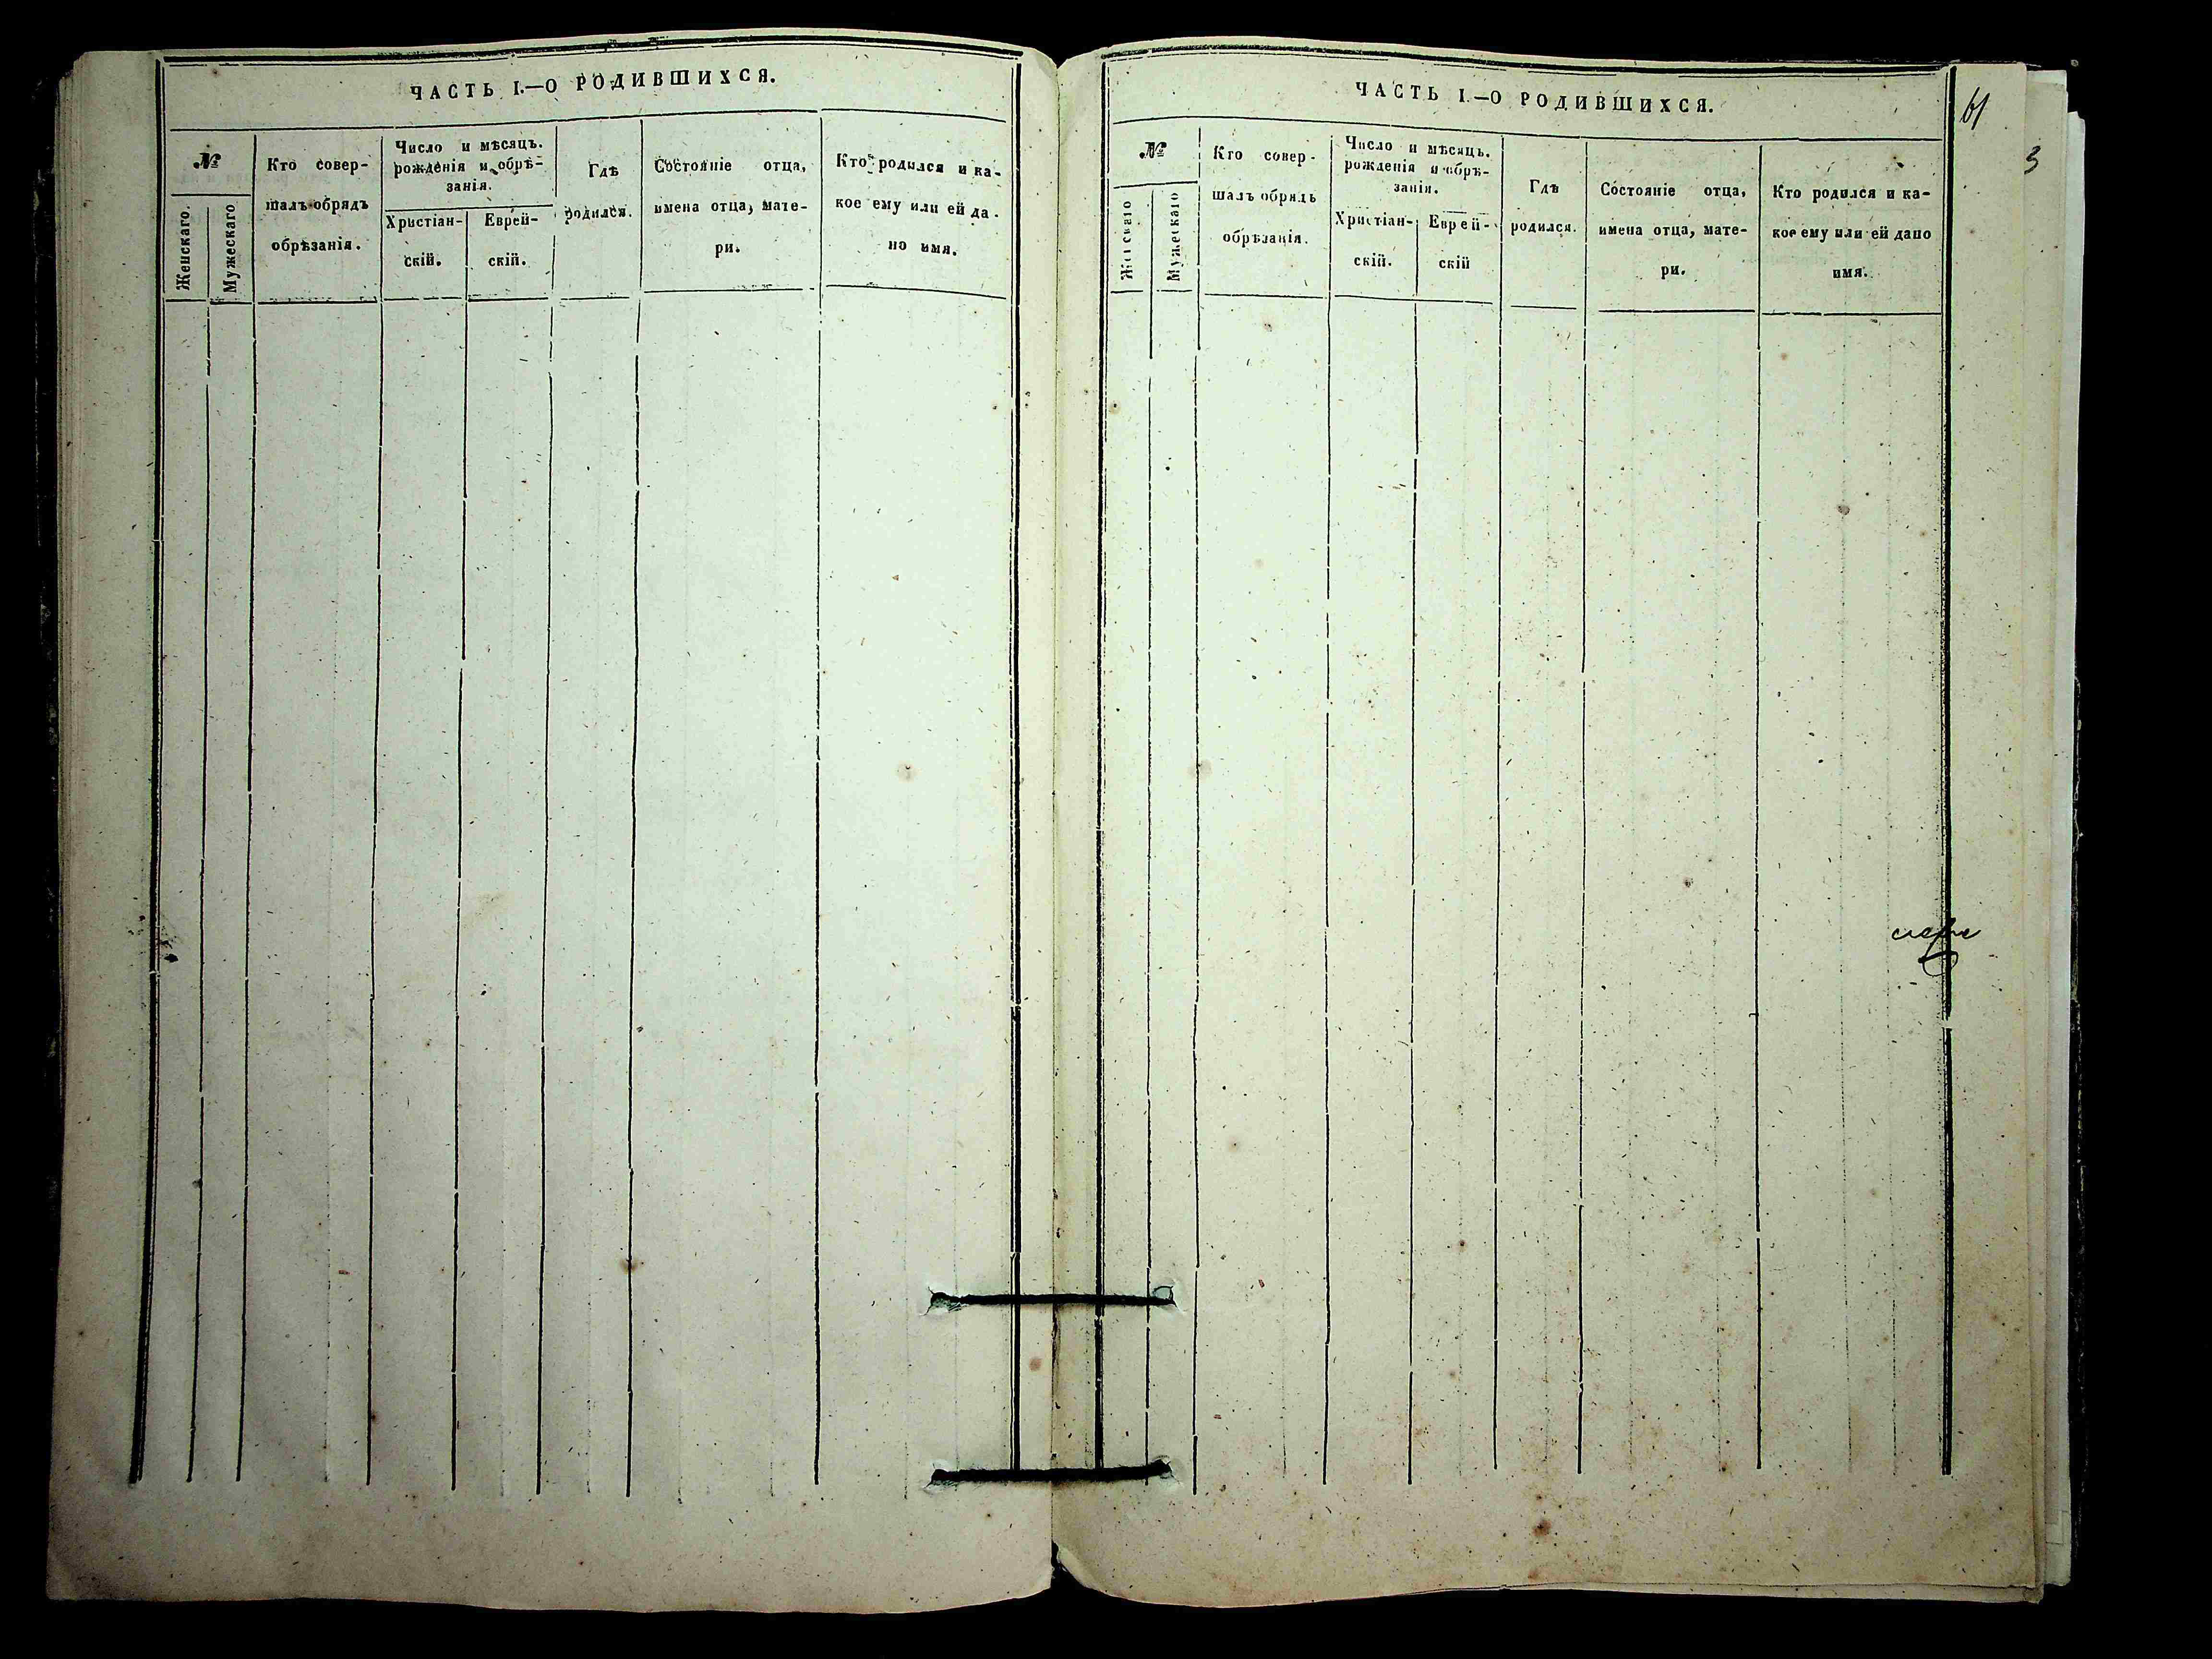 ЧАСТЬ I.—О РОДИВШИХСЯ.
№
Женскаго.
Мужескаго
Кто совер-
шалъ обрядъ
обрѣзанія.
Число и мѣсяцъ.
рожденія и обрѣ-
занія.
Христіан-
скій.
Еврей-
скій.
Гдѣ
родился.
Состояніе отца,
имена отца, мате-
ри.
Кто родился и ка-
кое ему или ей да-
но имя.
ЧАСТЬ I.—О РОДИВШИХСЯ.
61
3
№
Женскаго
Мужескаго
Кто совер-
шалъ обрядъ
обрѣзанія.
Число и мѣсяцъ.
рожденія и обрѣ-
занія.
Христіан-
скій.
Еврей-
скій
Гдѣ
родился.
Состояніе отца,
имена отца, мате-
ри.
Кто родился и ка-
кое ему или ей дано
имя.